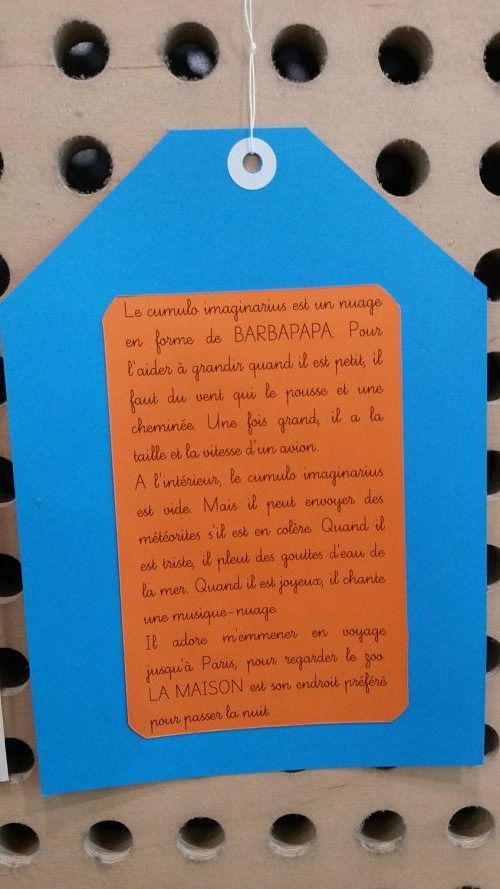 Le cumulo imaginarius est un nuage
en forme de BARBAPAPA. Pour
l'aider à grandir quand il est petit, il
faut du vent qui le pousse et une
cheminée. Une fois grand, il a la
taille et la vitesse d'un avion.
A l'intérieur, le cumulo imaginarius
est vide. Mais il peut envoyer des
météorites s'il est en colère. Quand il
est triste, il pleut des gouttes d'eau de
la mer. Quand il est joyeux, il chante
une musique-nuage.
Il adore m'emmener en voyage
jusqu'à Paris, pour regarder le zoo.
LA MAISON est son endroit préféré
pour passer la nuit.